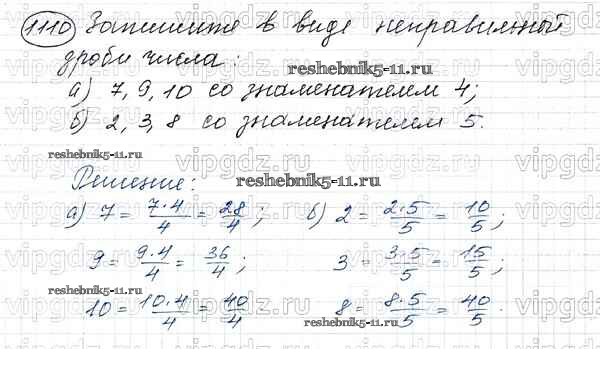 1110 Запишите в виде неправильной
дроби числа:
reshebnik5-11.ru
а) 7, 9, 10 со знаменателем 4;
б) 2, 3, 8 со знаменателем 5.
reshebnik5-11.ru
vipgdz.ru
Решение:
reshebnik5-11.ru
а) 7 = 7·4/4 = 28/4; б) 2 = 2·5/5 = 10/5;
9 = 9·4/4 = 36/4; 3 = 3·5/5 = 15/5;
reshebnik5-11.ru
10 = 10·4/4 = 40/4. 8 = 8·5/5 = 40/5.
reshebnik5-11.ru
reshebnik5-11.ru